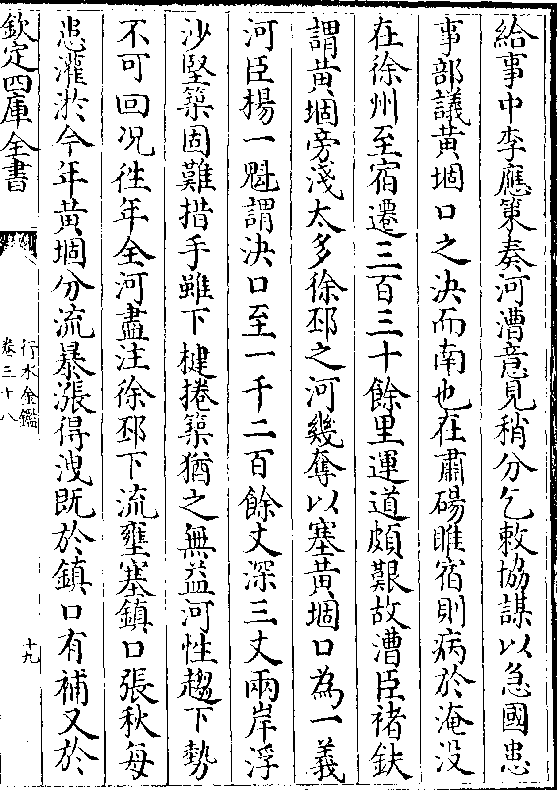 給事中李應策奏河漕意見稍分乞敕協謀以急國患
事部議黃堌口之決而南也在肅碭睢宿則病於淹没
在徐州至宿遷三百三十餘里運道頗艱故漕臣褚鈇
謂黃堌旁淺太多徐邳之河幾奪以塞黃堌口為一義
河臣楊一魁謂決口至一千二百餘丈深三丈兩岸浮
沙堅築固難措手雖下楗捲築猶之無益河性趨下勢
不可回况徃年全河盡注徐邳下流壅塞鎮口張秋每
患灌淤今年黃堌分流暴漲得洩既於鎮口有補又於
欽定四庫全書
行水金鑑
卷三十八
十九